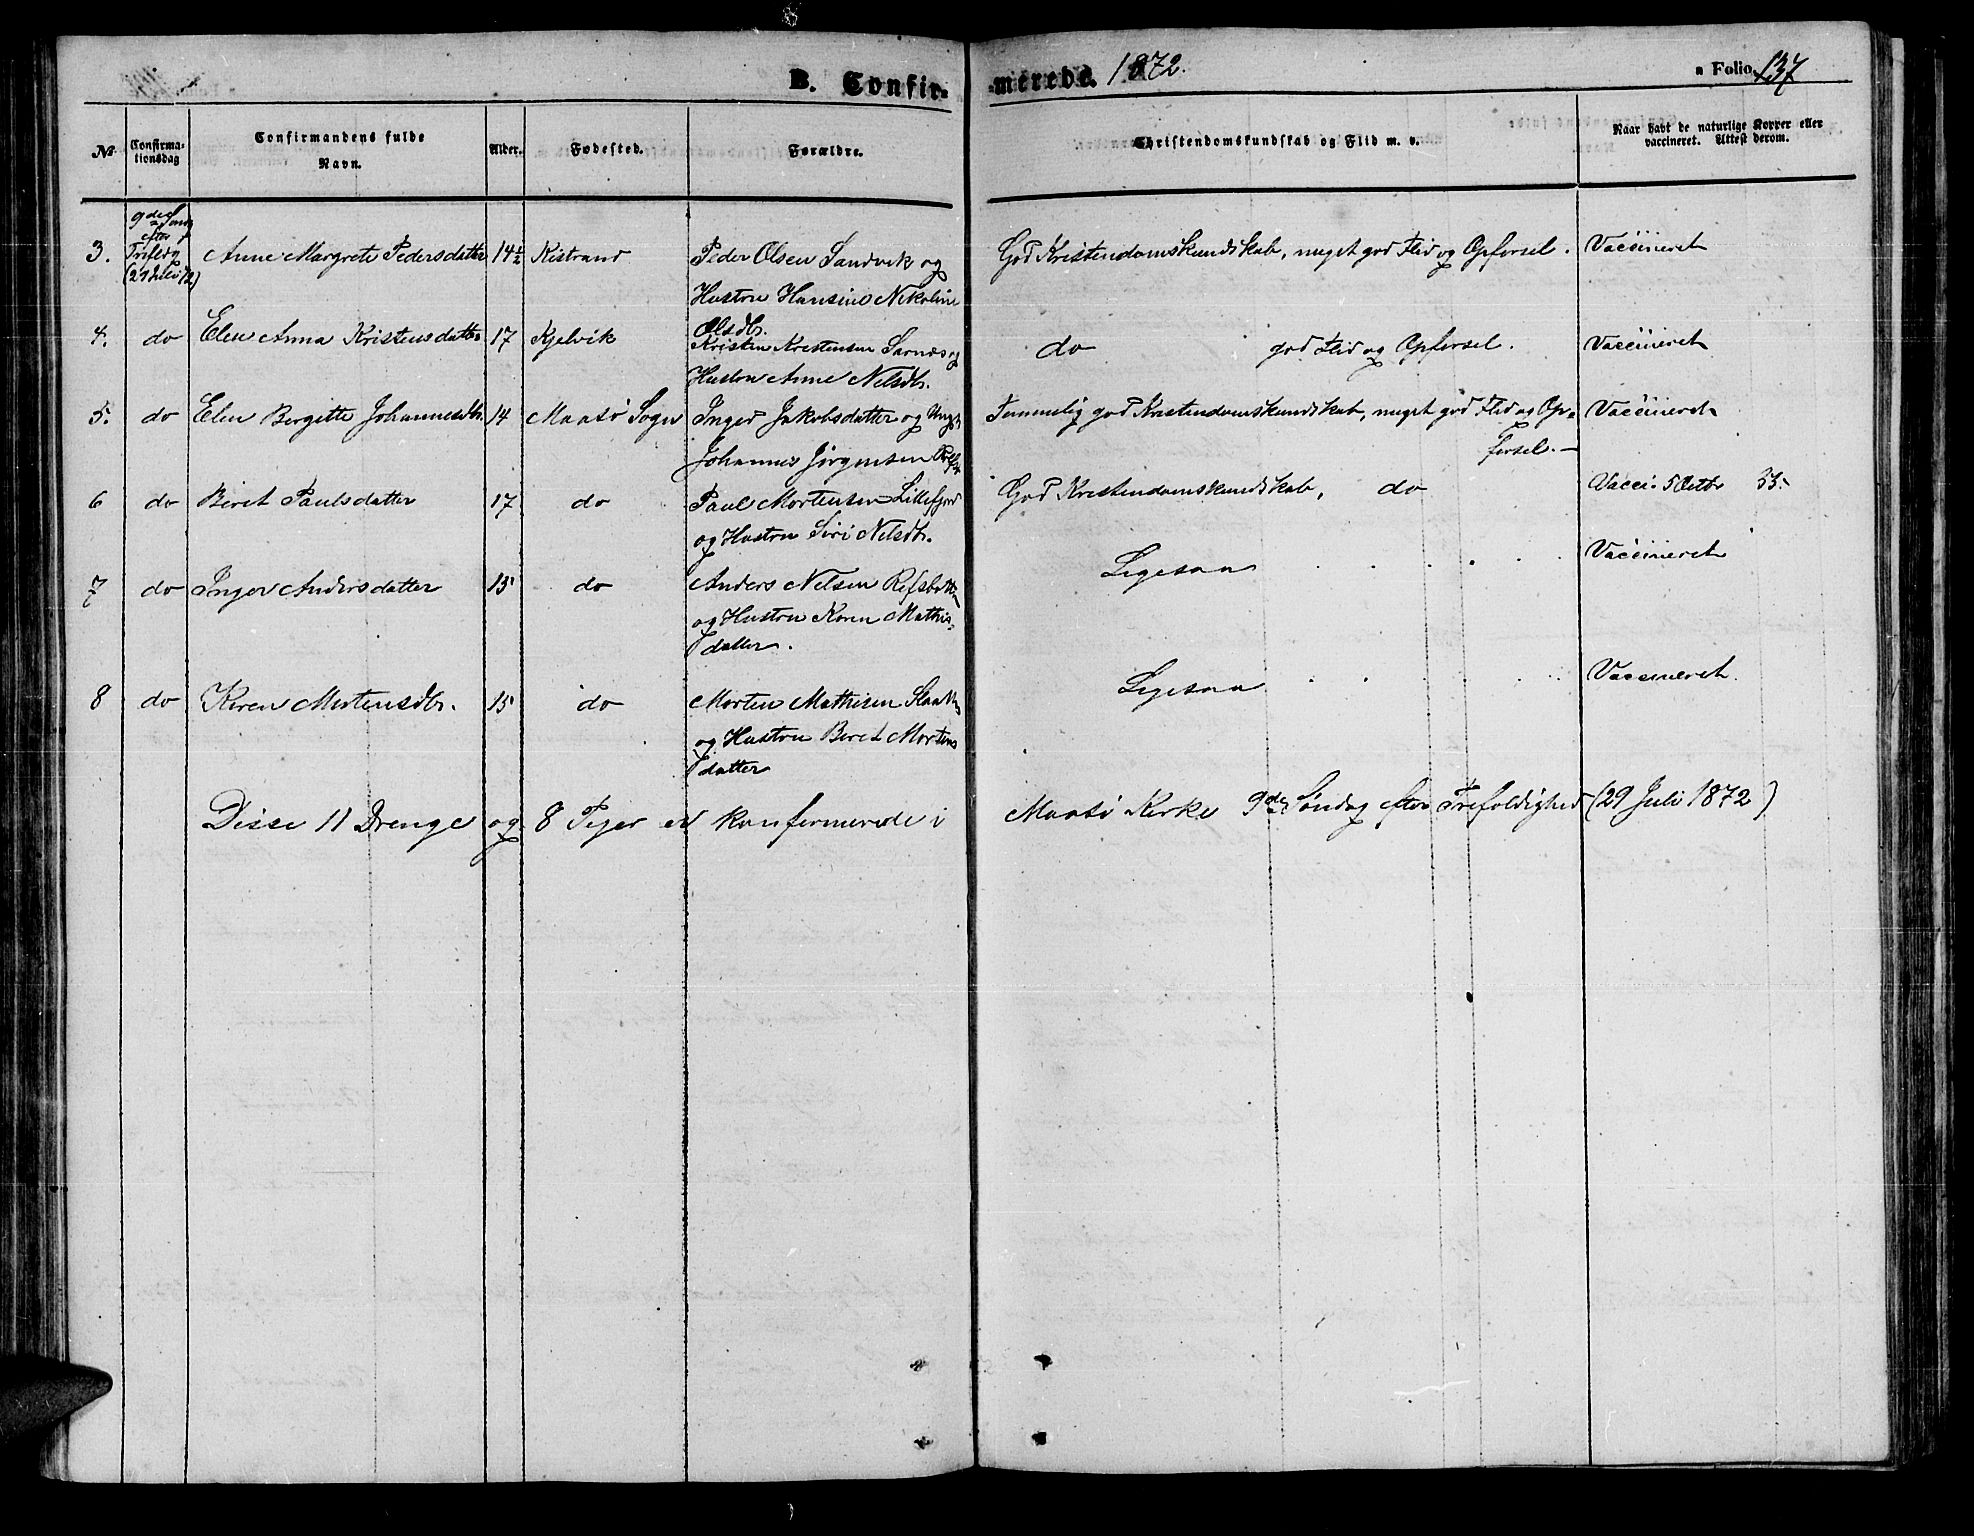 B. Confir-
merede. 1872.
Folio 137
No
Confirma-
tionsdag
Confirmandens fulde
Navn.
Alder.
Fødested.
Forældre.
Christendomskundskab og Flid m. v.
Naar havt de naturlige Kopper eller
vaccineret. Attest derom.
9de Sønd
efter
Trefoldg
3. Anne Margrete Pedersdatter 14½ Kistrand Peder Olsen Sandvik og God Kristendomskundskab, meget god Flid og Opførsel. Vaccineret
Hustru Hansine Nikoline
Olsdtr.
4. do Elen Anna Kristensdatter 17 Kjelvik Kristen Kristensen Sarnæs og do god Flid og Opførsel. Vaccineret
Hustru Anne Nilsdtr.
5. do Elen Birgitte Johannesdtr 14 Maasö Sogn Inger Jakobsdatter og Temmelig god Kristendomskundskab, meget god Flid og Op- Vaccineret
Johannes Jörgensen førsel.—
6 do Beret Paulsdatter 17 do Paul Mortensen Lillefjord God Kristendomskundskab, do Vacci. 5 Octbr 55.
og Hustru Siri Nilsdtr.
7 do Inger Andersdatter 15 do Anders Nilsen Refsbotten Ligesaa Vaccineret
og Hustru Karen Mathis-
datter.
8 do Karen Mortensdtr. 15 do Morten Mathisen Ligesaa Vaccineret.
og Hustru Beret Mortens
datter
Disse 11 Drenge og 8 Piger er konfirmerede i Maasö Kirke 9de Søndag efter Trefoldighed (29 Juli 1872)